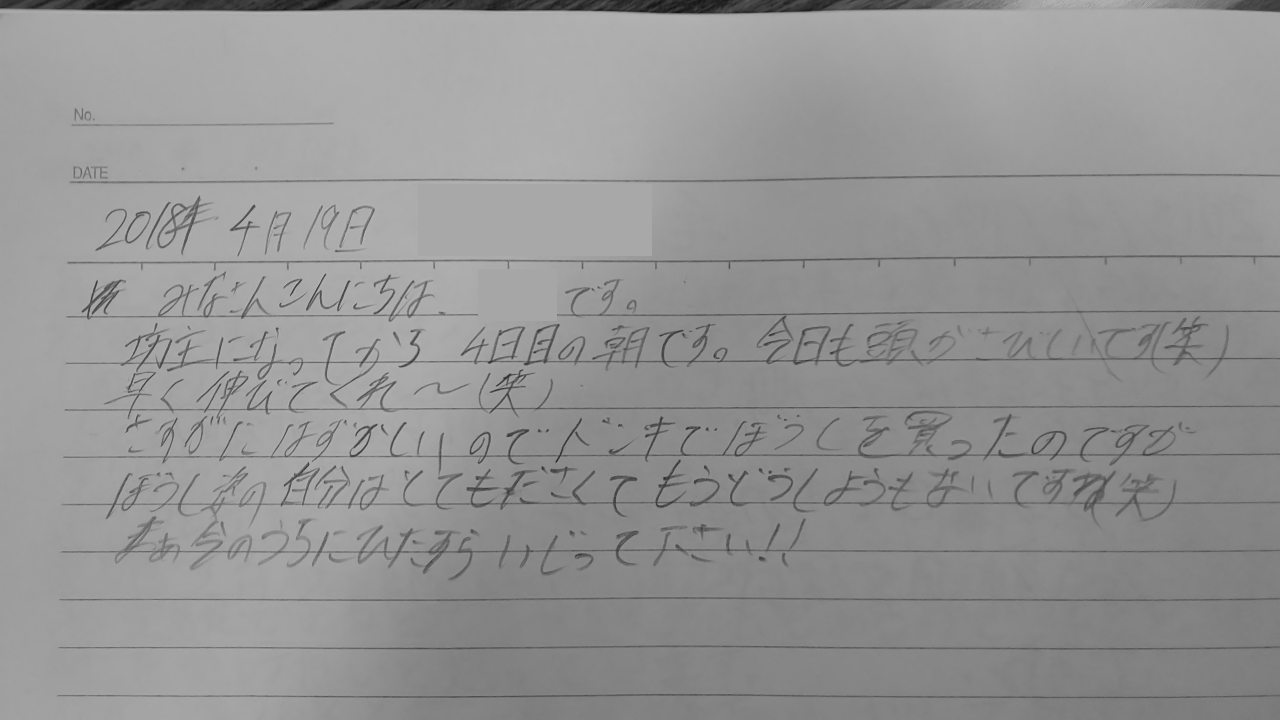 No.
DATE
2018年 4月19日
みなさんこんにちは、 です。
坊主になってから 4日目の朝です。今日も頭がさびしいです(笑)
早く伸びてくれ～(笑)
さすがにはずかしいのでドンキでぼうしを買ったのですが
ぼうし姿の自分はとてもださくてもうどうしようもないですね(笑)
まぁ今のうちにひたすらいじって下さい!!